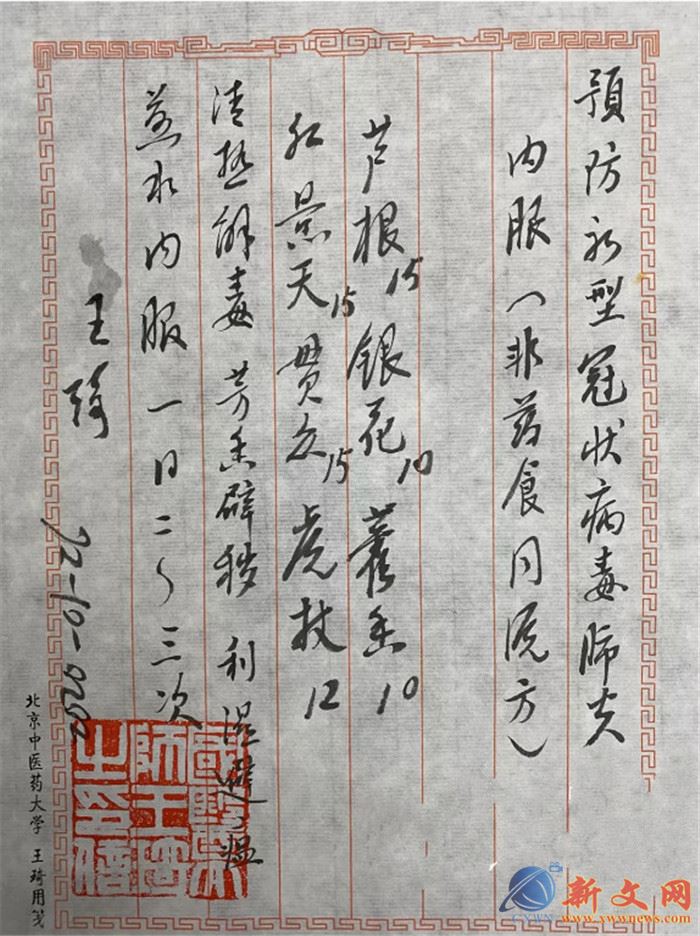 預防新型冠状病毒肺炎
内服(非药食同源方)
芦根15 银花10 藿香10
红景天15 贯众15 虎杖12
清热解毒 芳香辟秽 利湿避瘟
煎水内服 一日二~三次
王琦
國醫大
師王琦
北京中医药大学 王琦用笺
新文网
CYWN
www.ywwnews.com